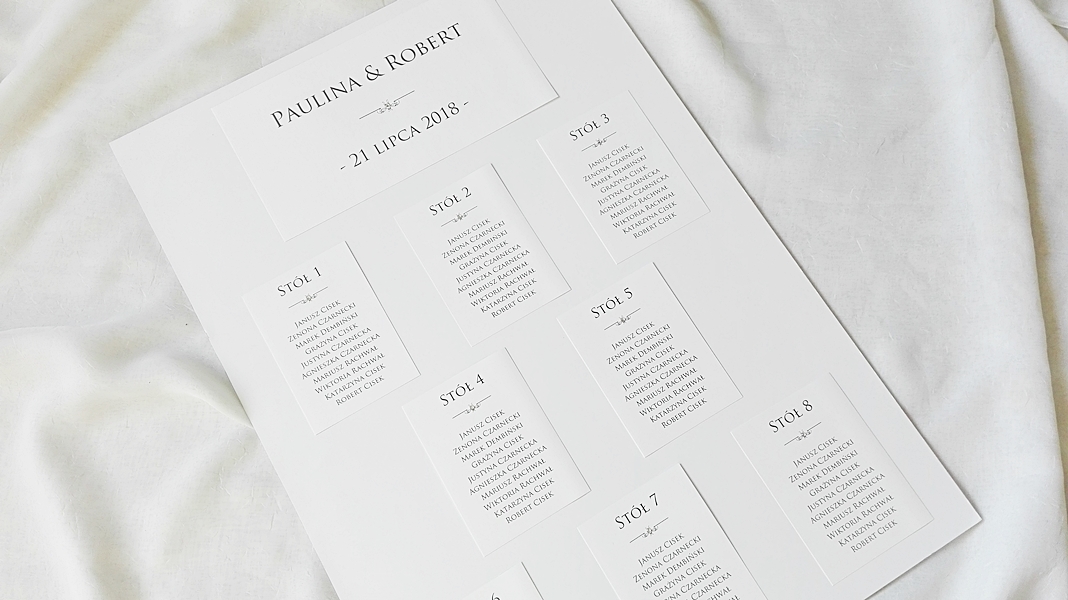 Paulina & Robert
- 21 lipca 2018 -
Stół 1
Janusz Cisek
Zenona Czarnecki
Marek Dembiński
Grażyna Cisek
Justyna Czarnecka
Agnieszka Czarnecka
Mariusz Rachwał
Wiktoria Rachwał
Katarzyna Cisek
Robert Cisek
Stół 2
Janusz Cisek
Zenona Czarnecki
Marek Dembiński
Grażyna Cisek
Justyna Czarnecka
Agnieszka Czarnecka
Mariusz Rachwał
Wiktoria Rachwał
Katarzyna Cisek
Robert Cisek
Stół 3
Janusz Cisek
Zenona Czarnecki
Marek Dembiński
Grażyna Cisek
Justyna Czarnecka
Agnieszka Czarnecka
Mariusz Rachwał
Wiktoria Rachwał
Katarzyna Cisek
Robert Cisek
Stół 4
Janusz Cisek
Zenona Czarnecki
Marek Dembiński
Grażyna Cisek
Justyna Czarnecka
Agnieszka Czarnecka
Mariusz Rachwał
Wiktoria Rachwał
Katarzyna Cisek
Robert Cisek
Stół 5
Janusz Cisek
Zenona Czarnecki
Marek Dembiński
Grażyna Cisek
Justyna Czarnecka
Agnieszka Czarnecka
Mariusz Rachwał
Wiktoria Rachwał
Katarzyna Cisek
Robert Cisek
6
Stół 7
Janusz Cisek
Zenona Czarnecki
Marek Dembiński
Grażyna Cisek
Justyna Czarnecka
Agnieszka Czarnecka
Mariusz Rachwał
Stół 8
Janusz Cisek
Zenona Czarnecki
Marek Dembiński
Grażyna Cisek
Justyna Czarnecka
Agnieszka Czarnecka
Mariusz Rachwał
Wiktoria Rachwał
Katarzyna Cisek
Robert Cisek